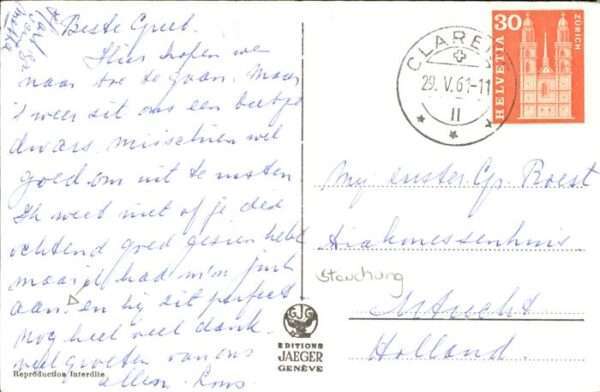 Beste Greet.
Hier hopen we
naar toe te gaan. Maar
't weer zit ons een beetje
dwars misschien wel
goed om uit te rusten
Ik weet niet of je die
ochtend goed gezien hebt
maar je had m'n jurk
aan. en hij zit perfect
Nog heel veel dank.
veel groeten van ons
allen.
Reproduction Interdite
EDITIONS
JAEGER
GENÈVE
30
HELVETIA
ZÜRICH
CLARENS
29. V. 61-11
II
Stauchung
Mej. zuster Gr. Roest
Diakonessenhuis
Utrecht
Holland.